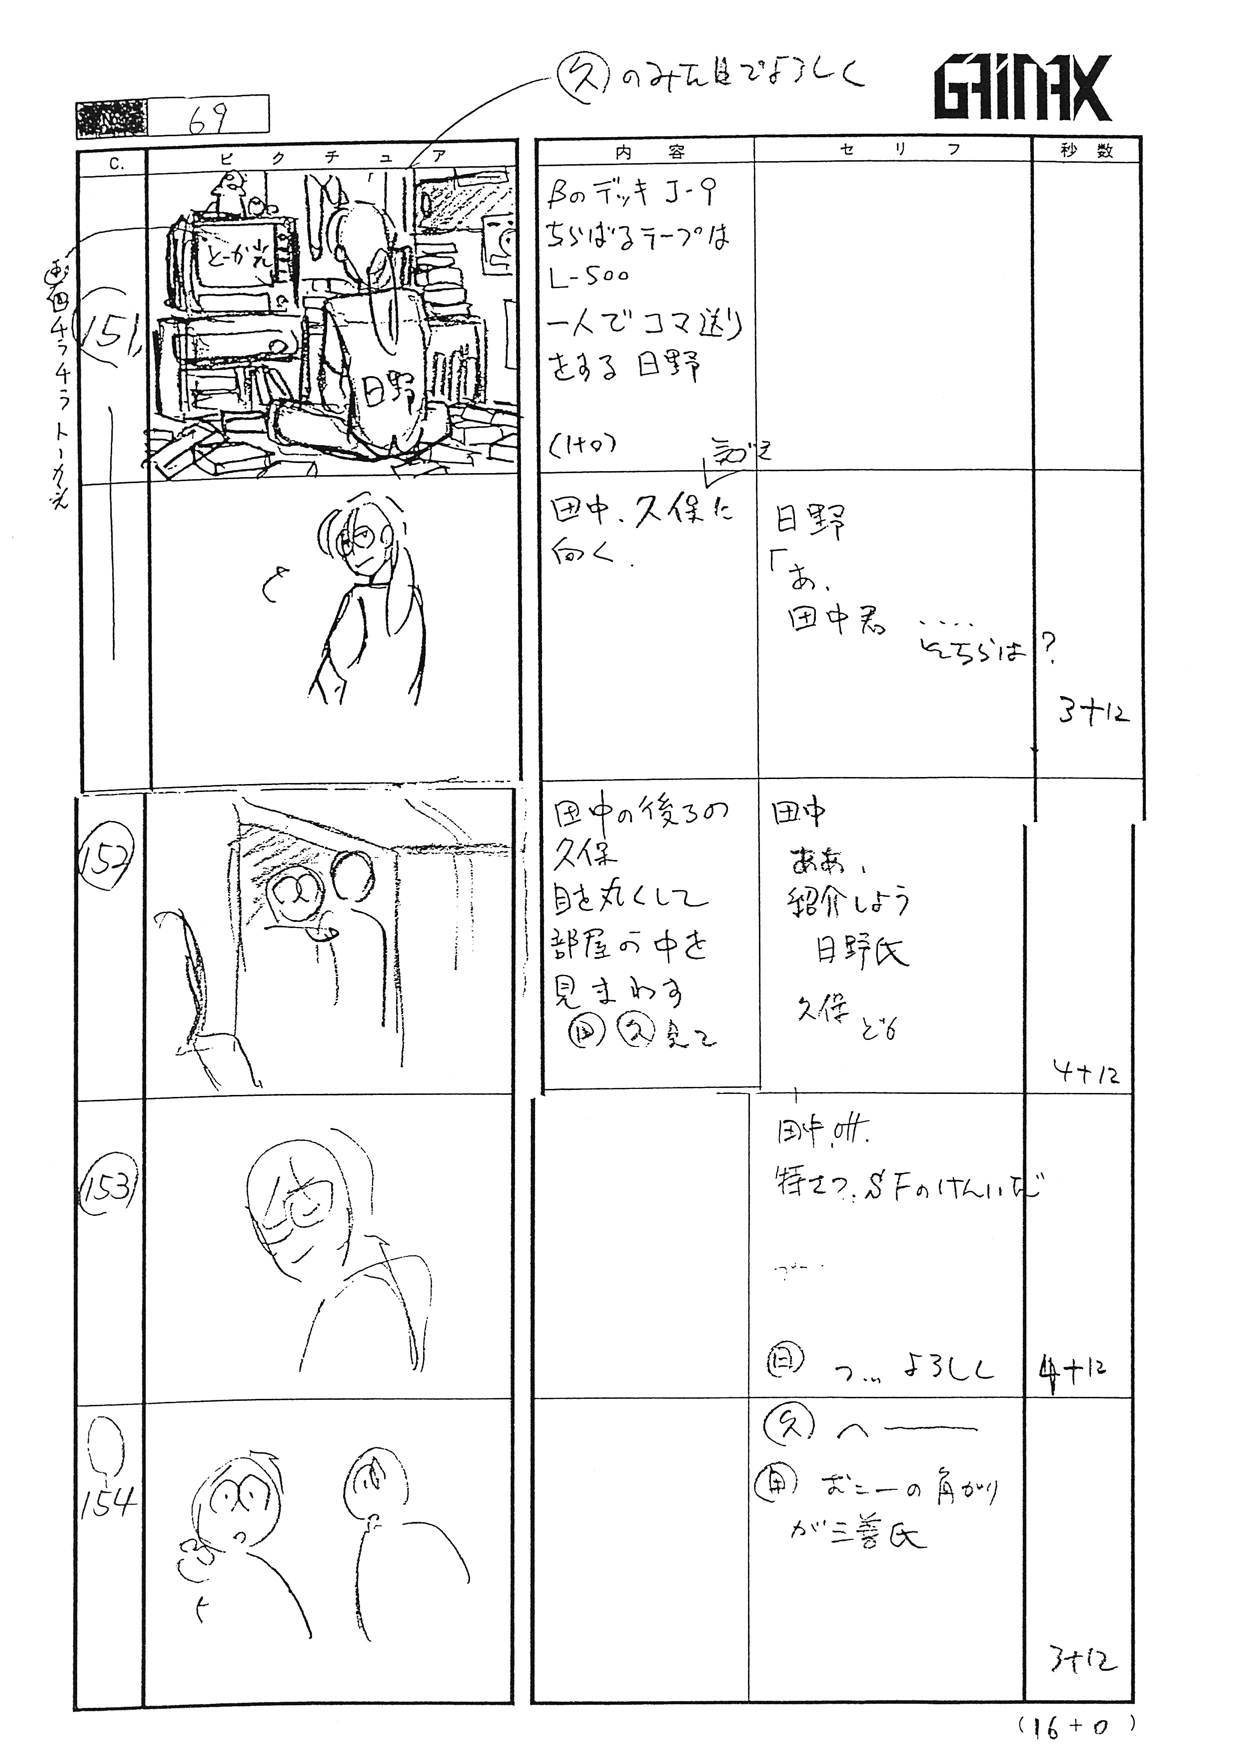 久のみた目でよろしく
GAINAX
No. 69
C. ピクチュア 内容 セリフ 秒数
151
画面チラチラ トーカ光
とーか光
日野
βのデッキ J-9
ちらばるテープは
L-500
一人でコマ送り
をする 日野
(1+0)
気づき
田中、久保に
向く.
日野
「あ、
田中君 ....
そちらは?
3+12
152
田中の後ろの
久保
目を丸くして
部屋の中を
見まわす
田中
ああ、
紹介しよう
日野氏
久保
4+12
153
田中 off.
特さつ、SFのけんいだ
日 つ… よろしく
4+12
154
久 へ――
田 むこーの角がり
が三善氏
3+12
(16+0)